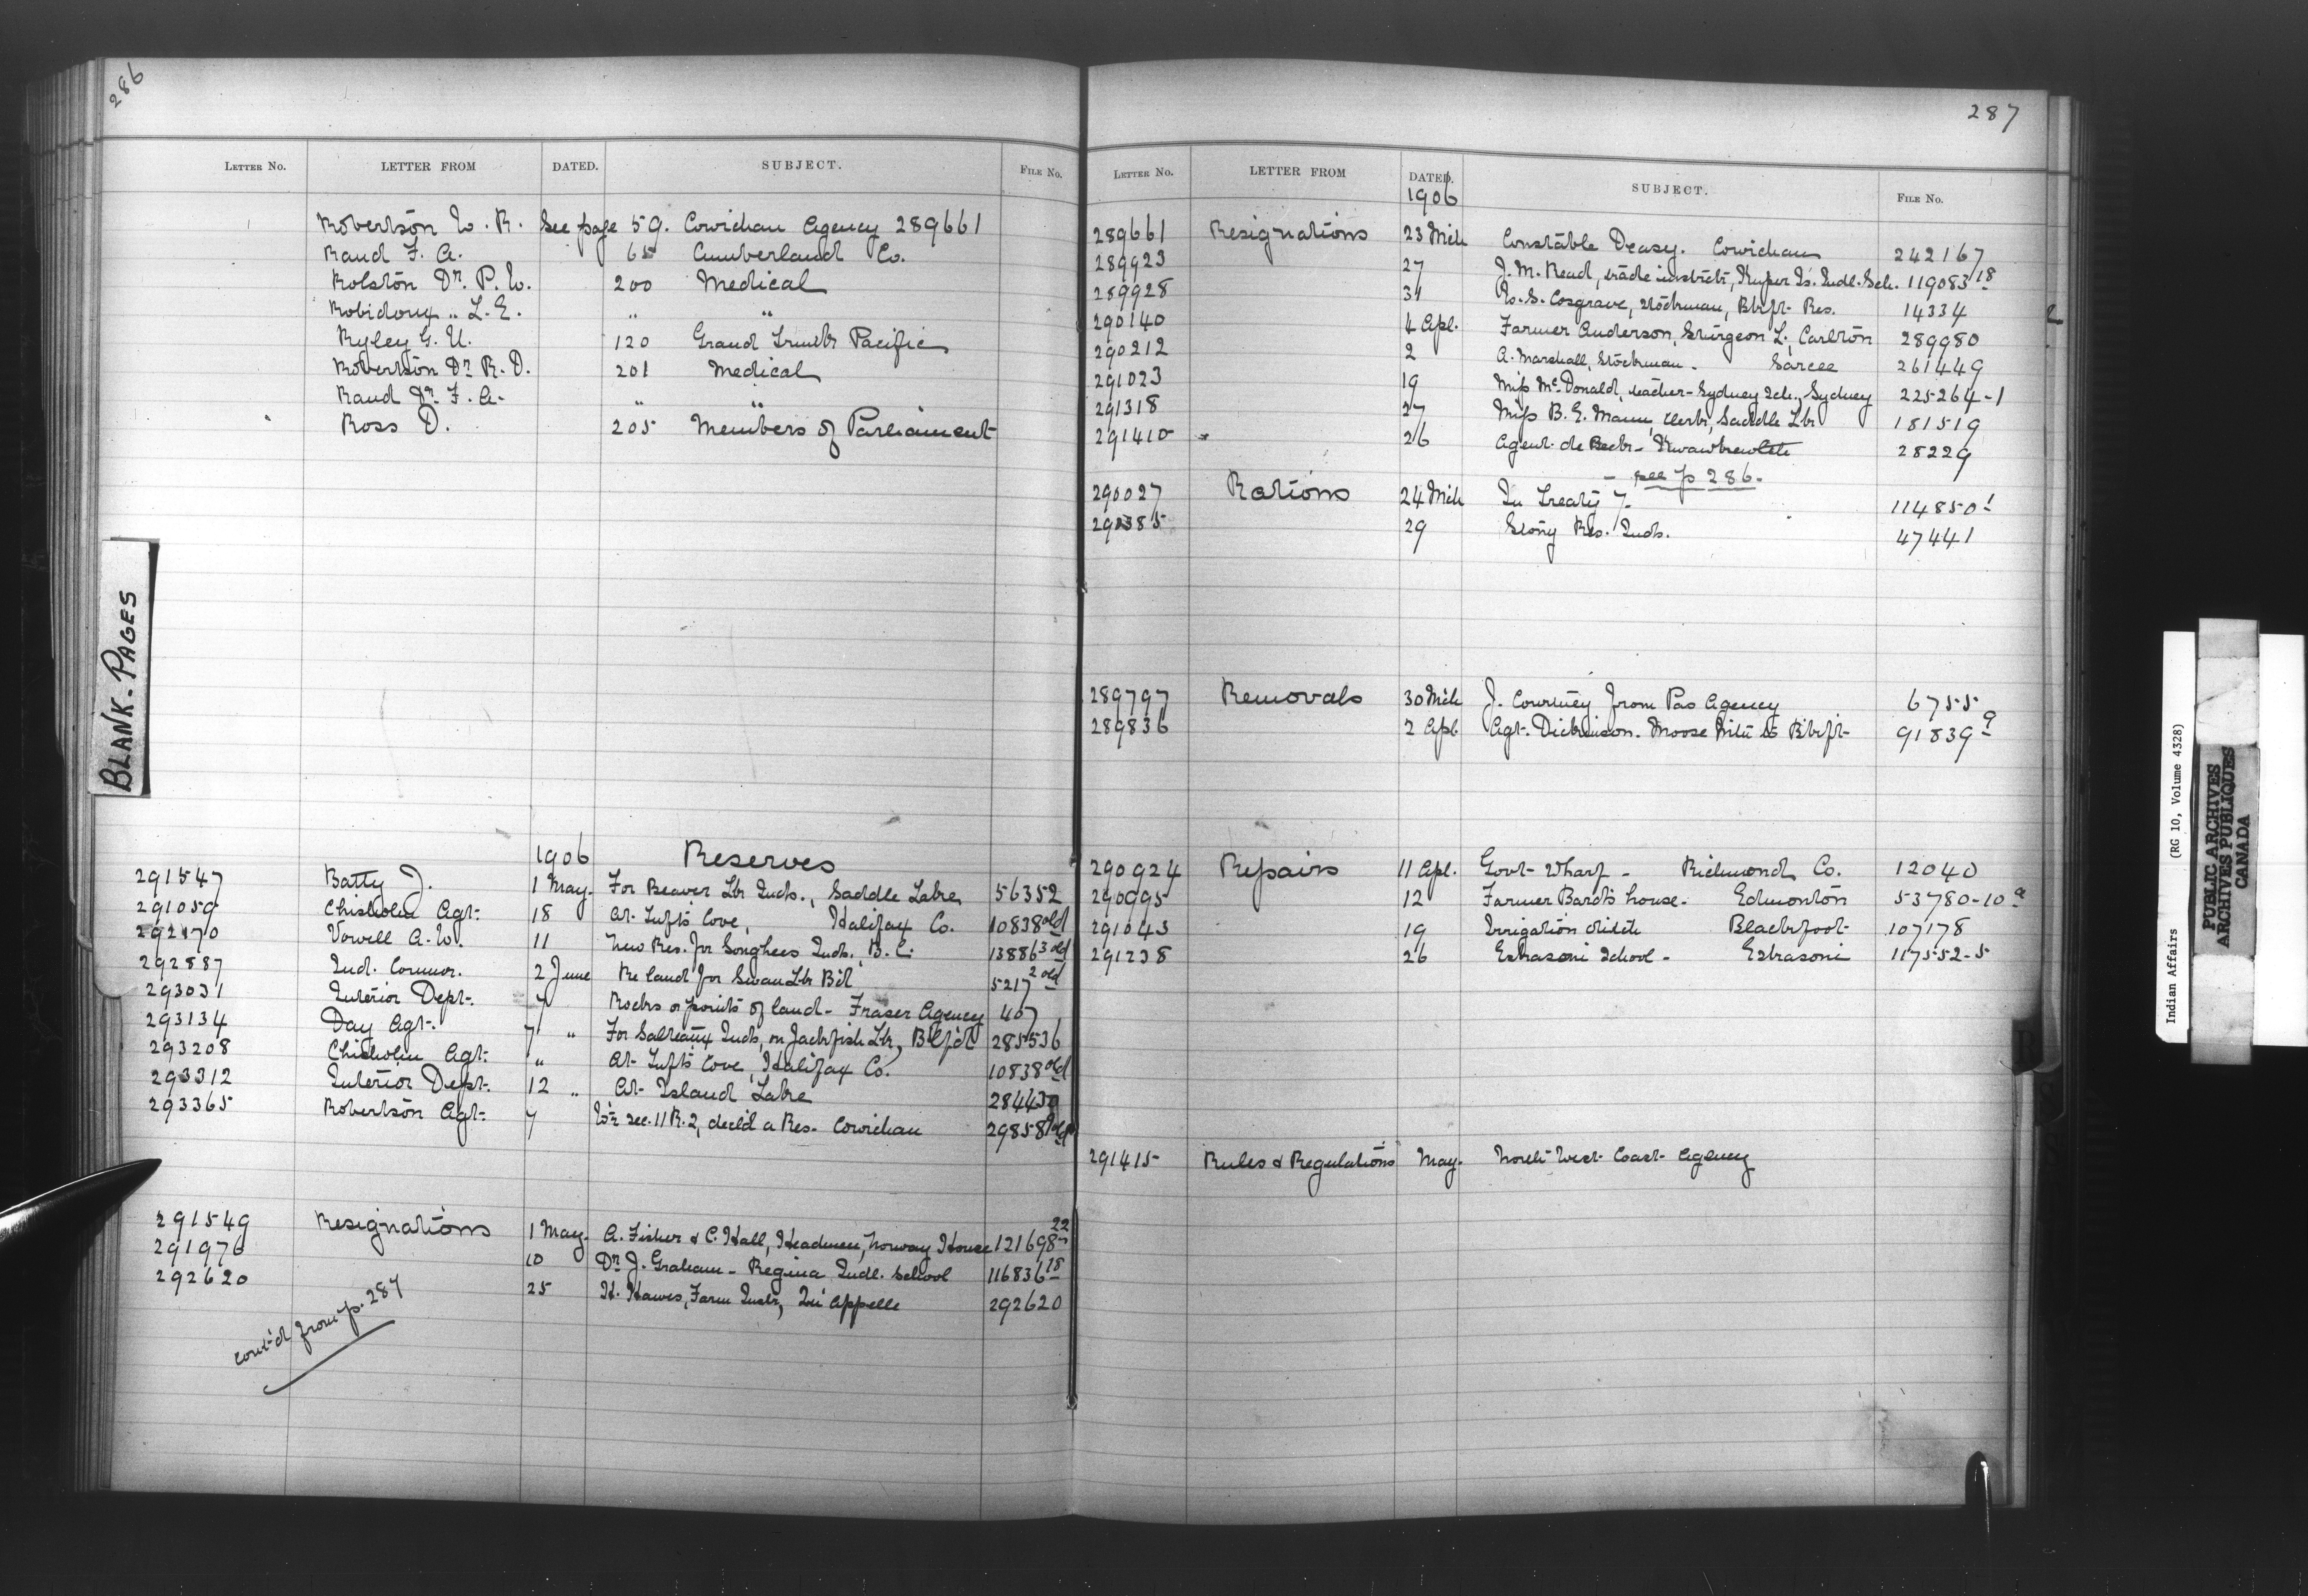 286
LETTER No. LETTER FROM DATED. SUBJECT. FILE No.
Robertson W. R. See page 59. Cowichan Agency 289661
Rand F. A. 65 Cumberland Co.
Rolston Dr. P. W. 200 Medical
Robidoux " L. E. " "
Ryley G. U. 120 Grand Trunk Pacific
Robertson Dr R. D. 201 Medical
Rand Dr. F. A. " "
Ross D. 205 Members of Parliament
BLANK-PAGES
1906 Reserves
291547 Batty J. 1 May. For Beaver Lk Inds., Saddle Lake 56352
291059 Chisholm Agt. 18 At Tufts Cove, Halifax Co. 10838 old
292170 Vowell A. W. 11 New Res. for Songhees Inds. B.C. 13886 3 old
292887 Ind. Commr. 2 June Re land for Swan Lk Bd 5217 2 old
293031 Interior Dept. 4 Rocks or points of land - Fraser Agency 407
293134 Day Agt. 7 " For Salteaux Inds, on Jackfish Lk, B'lf'd 285536
293208 Chisholm Agt. " At Tufts Cove, Halifax Co. 10838 old
293312 Interior Dept. 12 " At Island Lake 284430
293365 Robertson Agt. 7 W½ sec. 11 R. 2, decl'd a Res. Cowichan 29858 old
291549 Resignations 1 May. A. Fisher & C. Hall, Headmen, Norway House 121698 22
291976 10 Dr J. Graham - Regina Indl. School 116836 18
292620 25 H. Hawes, Farm Instr, Qu'Appelle 292620
Cont'd from p. 287
287
LETTER No. LETTER FROM DATED. SUBJECT. FILE No.
1906
289661 Resignations 23 Mch Constable Deasy. Cowichan 242167
289923 27 J. M. Read, trade instrctr, Kuper Is. Indl. Sch. 119083 18
289928 31 W. S. Cosgrave, Stockman, Blkft Res. 14334
290140 4 Apl. Farmer Anderson, Sturgeon L., Carlton 289980
290212 2 A. Marshall, Stockman - Sarcee 261449
291023 19 Miss McDonald, teacher - Sydney Sch., Sydney 225264-1
291318 27 Miss B. E. Mann, clerk, Saddle Lk 181519
291410 " 26 Agent de Beck - Kwawkewlth 28229
- see p 286.
290027 Rations 24 Mch In Treaty 7. 114850 1
290385 29 Stony Res. Inds. 47441
289797 Removals 30 Mch J. Courtney from Pas Agency 6755
289836 2 Apl Agt. Dickinson. Moose Mtn to Blkft 91839 9
290924 Repairs 11 Apl. Govt Wharf - Richmond Co. 12040
290995 12 Farmer Bard's house - Edmonton 53780-10 a
291043 19 Irrigation ditch Blackfoot 107178
291238 26 Eskasoni School - Eskasoni 117552-5
291415 Rules & Regulations May. North West Coast Agency
Indian Affairs (RG 10, Volume 4328)
PUBLIC ARCHIVES
ARCHIVES PUBLIQUES
CANADA